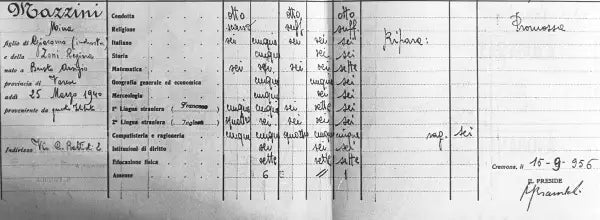 Mazzini
Mina
figlio di Giacomo (industr.
e della Zoni Regina
nato a Busto Arsizio
provincia di Varese
addì 25 Marzo 1940
proveniente da
Indirizzo Via
Condotta otto otto otto
Religione suff. suff
Italiano sei cinque sei sei sei
Storia cinque sei sei
Matematica sei sei sei sei sette
Geografia generale ed economica cinque sei
Merceologia cinque sei
1ª Lingua straniera ( Francese cinque cinque sei sette sei
2ª Lingua straniera ( Inglese quattro sei sei sei
Computisteria e ragioneria cinque cinque quattro cinque cinque rag. sei
Istituzioni di diritto sei sei sei
Educazione fisica sette sette sette
Assenze 6 // 1
Ripara:
Promossa
Cremona, li 15-9-956
IL PRESIDE